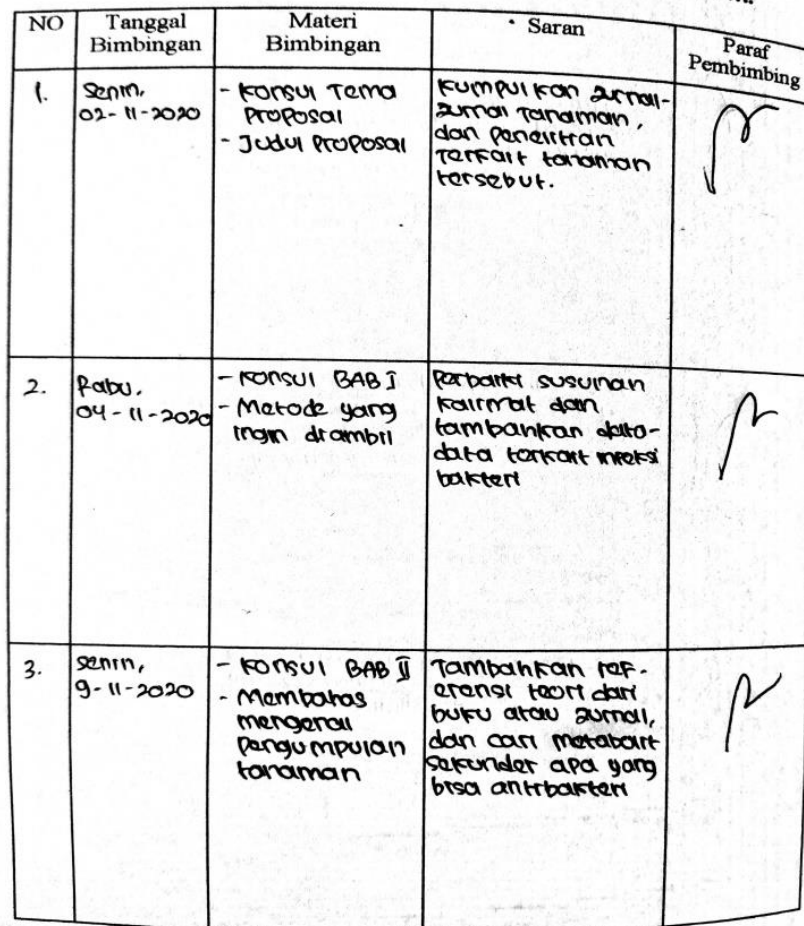 NO
Tanggal
Bimbingan
Materi
Bimbingan
Saran
Paraf
Pembimbing
1.
Senin,
02-11-2020
- Konsul Tema
Proposal
- Judul Proposal
Kumpulkan Jurnal-
Jurnal Tanaman,
dan penelitian
Terkait tanaman
tersebut.
2.
Rabu,
04-11-2020
- Konsul BAB I
- Metode yang
ingin diambil
Perbaiki susunan
kalimat dan
tambahkan data-
data terkait infeksi
bakteri
3.
Senin,
9-11-2020
- Konsul BAB II
- Membahas
mengenai
pengumpulan
tanaman
Tambahkan ref-
erensi teori dari
buku atau Jurnal,
dan cari metabolit
sekunder apa yang
bisa antibakteri